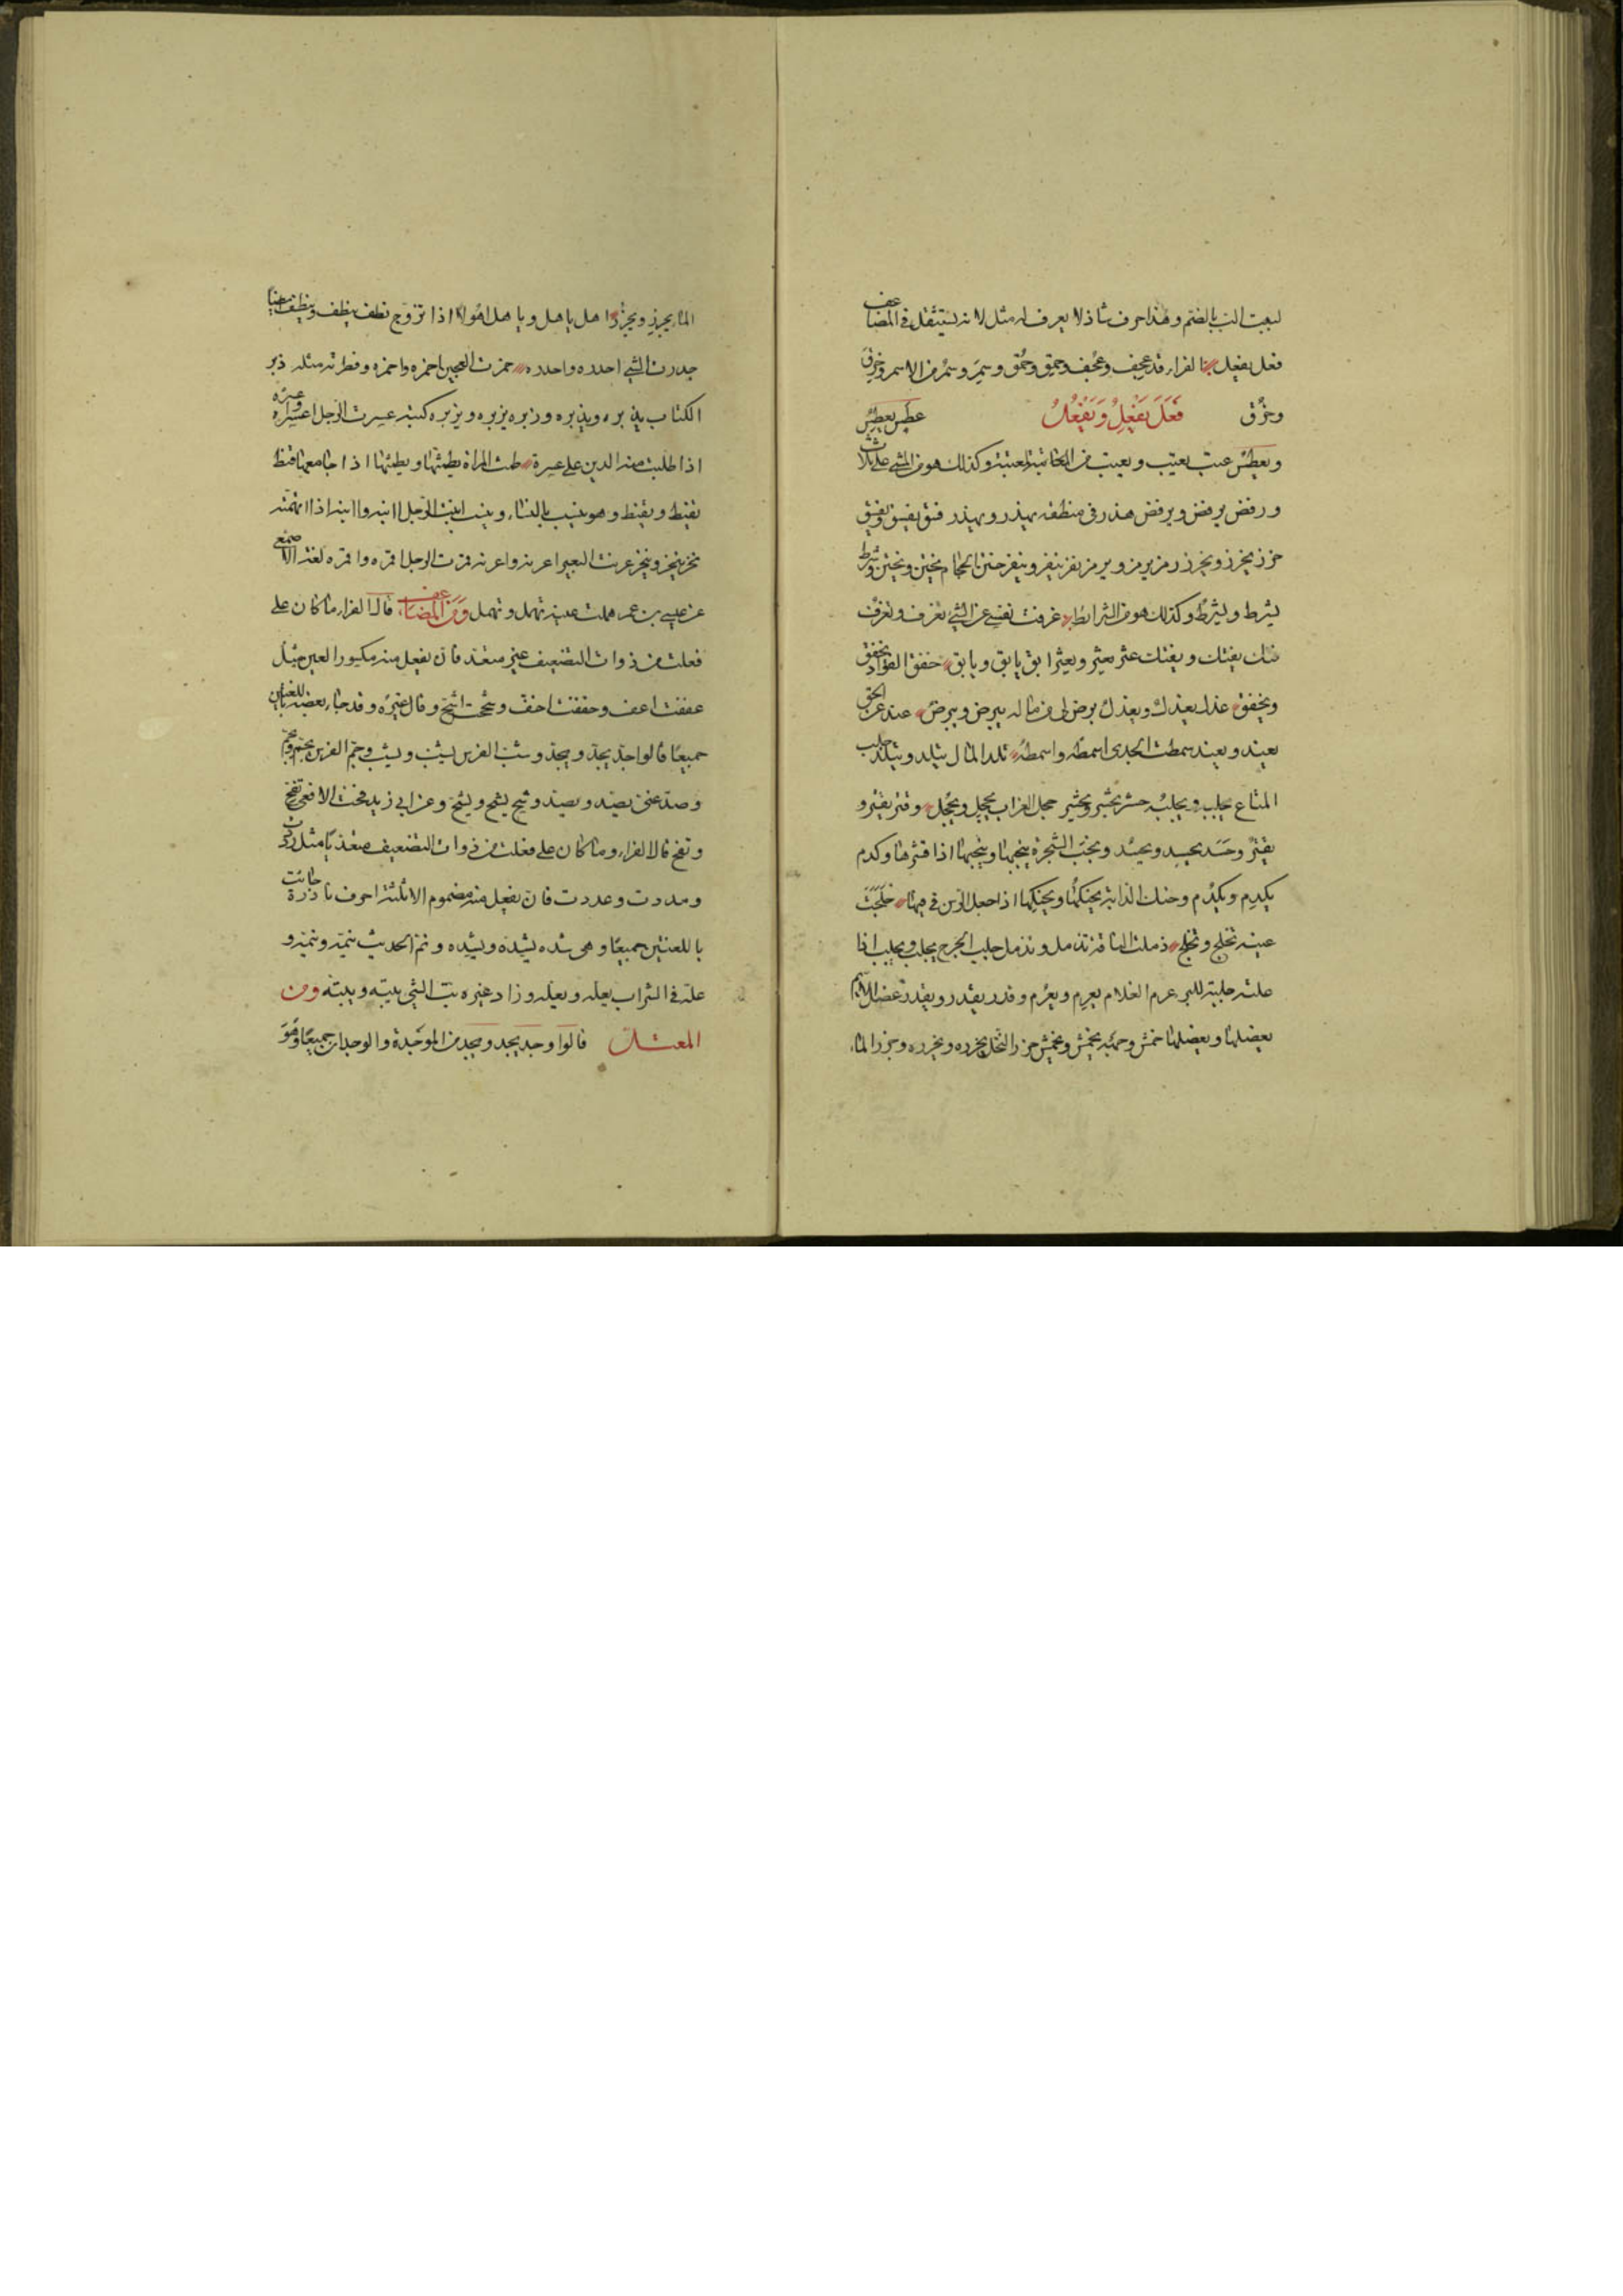 لببت الب بالضم وهذا حرف شاذ لا يعرف له مثل لانه يستثقل في المضاعف
فعل يفعل قال الفراء قد عجف وعجف وحمق وحمق وسمر وسمر من الاسمر وخرق
وخرق فَعَلَ يَفْعِلُ وَيَفْعُلُ عطس يعطس
ويعطس عتب يعتب ويعتب من المعاتبة وكذلك هو من المشي على ثلاث
ورفض يرفض ويرفض هذر في منطقه يهذر ويهذر فسق يفسق ويفسق
خرز يخرز ويخرز رمز يرمز ويرمز نفر ينفر وينفر الحجام وشرط
يشرط ويشرط وكذلك هو من الشرائط عزفت نفسي عن الشيء تعزف وتعزف
فتك يفتك ويفتك عثر يعثر ويعثر ابق يابق ويابق خفق الفؤاد يخفق
ويخفق عذل يعذل ويعذل برض لي من ماله يبرض ويبرض عند عن الحق
يعند ويعند سمطت الجدي اسمطه واسمطه تلد المال يتلد ويتلد جلب
المتاع يجلب ويجلب حشر يحشر ويحشر حجل الغراب يحجل ويحجل وقتر يقتر و
يقتر وحسد يحسد ويحسد ونجب الشجرة ينجبها وينجبها اذا قشرها وكدم
يكدم ويكدم وحنك الدابة يحنكها ويحنكها اذا جعل الرسن في فيها خلجت
عينه تخلج وتخلج ذملت الناقة تذمل وتذمل جلب الجرح يجلب ويجلب اذا
علته جلبة للبرء عرم الغلام يعرم ويعرم وقدر يقدر ويقدر عضل الايم
يعضلها ويعضلها خمش وجهه يخمش ويخمش حزر النخل يحزره ويحزره وجزر الماء
الماء يجزر ويجزر اهل ياهل وياهل اهولا اذا تزوج نطف ينطف وينطف
حدرت الشيء احدره واحدره خمرت العجين اخمره واخمره وفطرته مثله ذبر
الكتاب يذبره ويذبره وزبره يزبره ويزبره كتبه عسرت الرجل اعسره
اذا طلبت منه الدين على عسرة طمث المراة يطمثها ويطمثها اذا جامعها قنط
يقنط ويقنط وهو ينسب بالنساء وينسب ابنت الرجل اابنه واابنه اذا اتهمته
نخر ينخر وينخر عرنت البعير اعرنه واعرنه قمرت الرجل اقمره واقمره لغة الاصمعي
عن عيسى بن عمر هملت عينه تهمل وتهمل وَمنَ المضاعف قال الفراء ما كان على
فعلت من ذوات التضعيف غير متعد فان يفعل منه مكسور العين مثل
عففت اعف وخففت اخف وشححت اشح وقال غيره وقد جاء بعضه باللغتين
جميعًا قالوا جد يجد ويجد وشب الفرس يشب ويشب وجم الفرس يجم ويجم
وصد عني يصد ويصد وشح يشح ويشح وعن ابي زيد فحت الافعى تفح
وتفح قال الفراء وما كان على فعلت من ذوات التضعيف متعديًا مثل رددت
ومددت وعددت فان يفعل منه مضموم الا ثلثة احرف نادرة جائت
باللغتين جميعًا وهي شده يشده ويشده ونم الحديث ينمه وينمه و
عله في الشراب يعله ويعله وزاد غيره بت الشيء يبته ويبته ومن
المعتل قالوا وجد يجد ويجد من الموجدة والوجدان جميعًا وهو